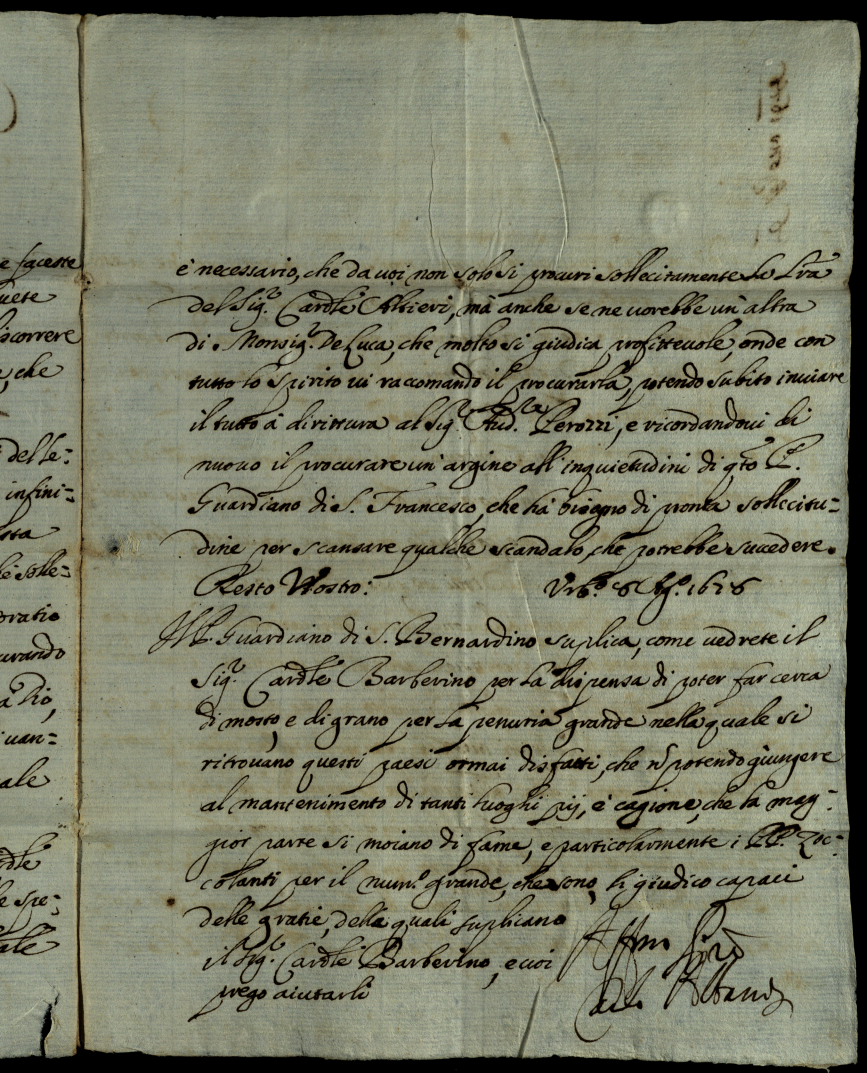 e faceste
uete
iscorrere
, che
dell'e:
infini=
sta
he solle=
oratio
urando
a Dio,
uan=
ale
ardle
e spe=
ale
è necessario, che da uoi non solo si procuri sollecitamente la lr̄a
del Sig.r Cardle Altieri, mà anche se ne uorebbe un'altra
di Monsig.r De Luca, che molto si giudica profitteuole, onde con
tutto lo spirito ui raccomando il procurarla, potendo subito inuiare
il tutto à dirittura al Sig.r Aud.re Perozzi, e ricordandoui di
nuouo il procurare un'argine all'inquietudini di qto P.
Guardiano di S. Francesco, che hà bisogno di pronta sollecitu=
dine per scansare qualche scandalo, che potrebbe succedere.
Resto Vostro: Urb.o 8 Ag.o 1678
Il P. Guardiano di S. Bernardino suplica, come uedrete il
Sig.r Cardle Barberino per la dispensa di poter far cerca
di mosto, e di grano per la penuria grande nella quale si
ritrouano questi paesi ormai disfatti, che nō potendo giungere
al mantenimento di tanti luoghi pij, è cagione, che la mag=
gior parte si moiano di fame, e particolarmente i PP. Zoc=
colanti per il num.o grande, che sono, li giudico capaci
delle gratie, della quali suplicano
il Sig.r Cardle Barberino, e uoi
prego aiutarli
Affmo
Carlo Albani